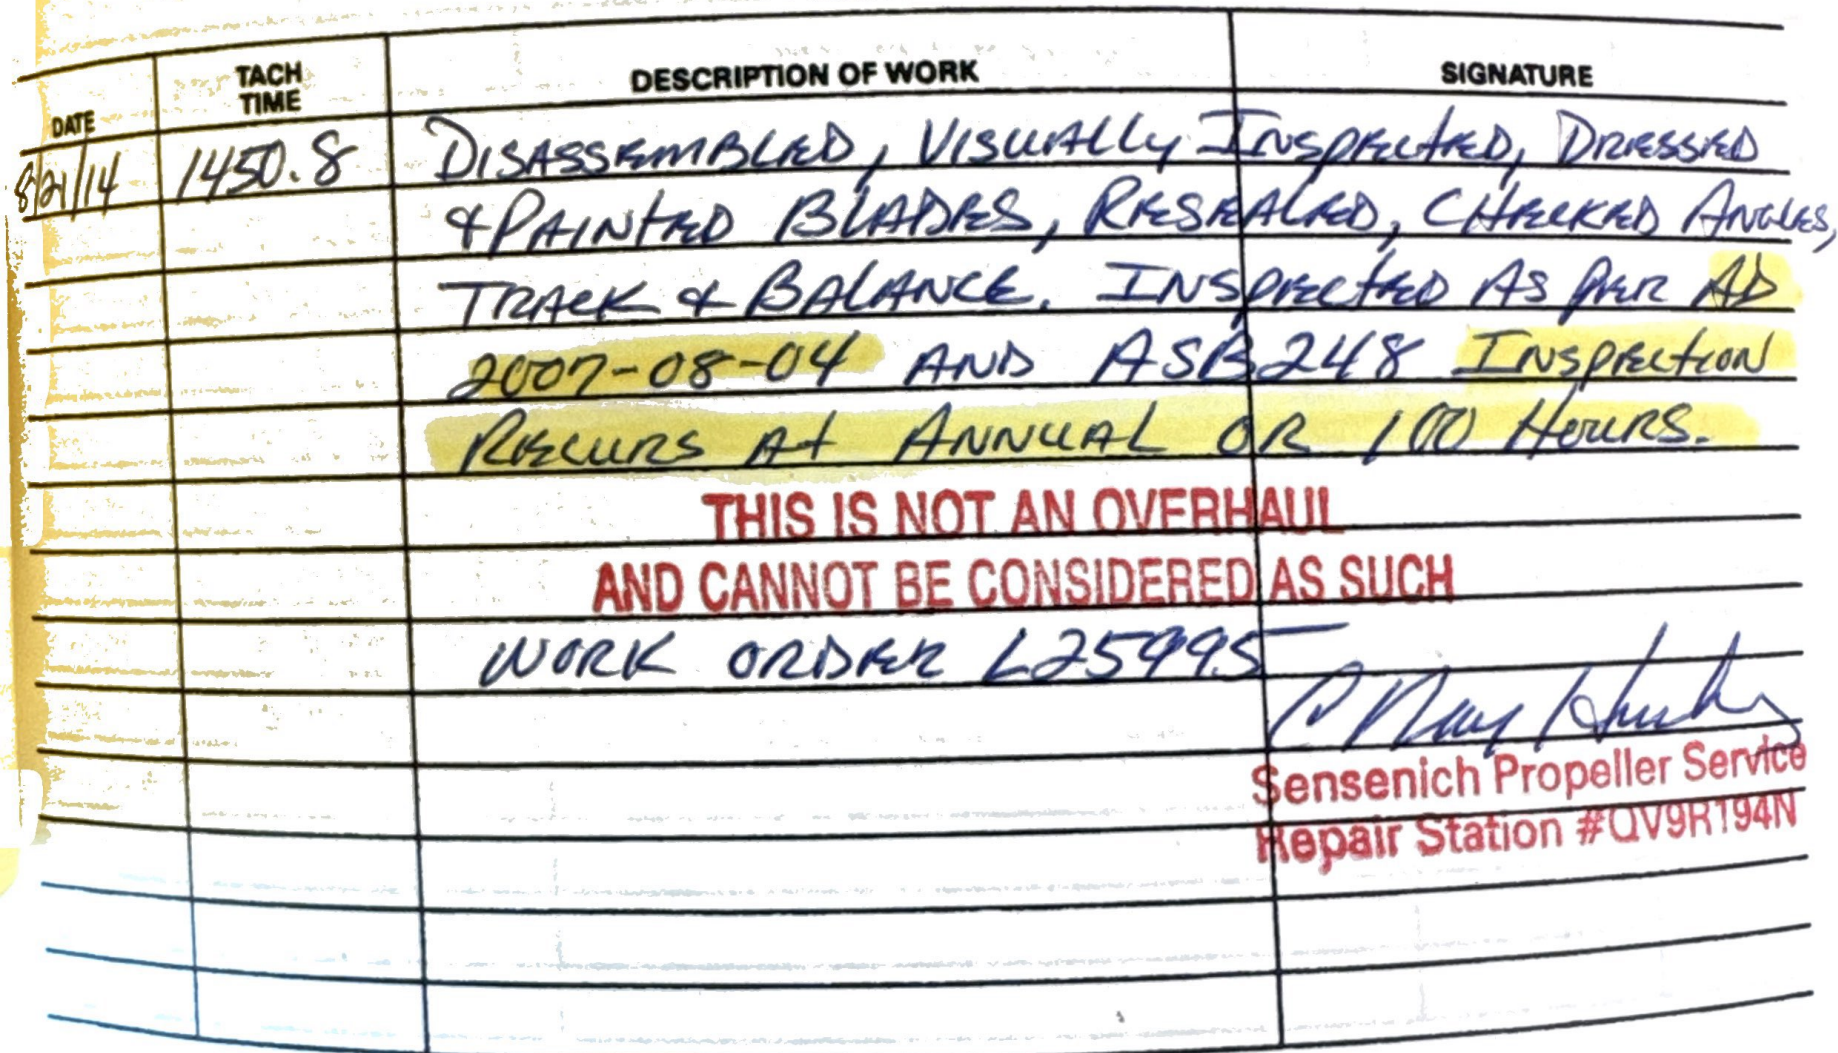 DATE TACH TIME DESCRIPTION OF WORK SIGNATURE
8/21/14 1450.8 DISASSEMBLED, VISUALLY INSPECTED, DRESSED
& PAINTED BLADES, RESEALED, CHECKED ANGLES,
TRACK & BALANCE. INSPECTED AS PER AD
2007-08-04 AND ASB248 INSPECTION
RECURS At ANNUAL OR 100 HOURS.
THIS IS NOT AN OVERHAUL
AND CANNOT BE CONSIDERED AS SUCH
WORK ORDER L25995
Sensenich Propeller Service
Repair Station #QV9R194N